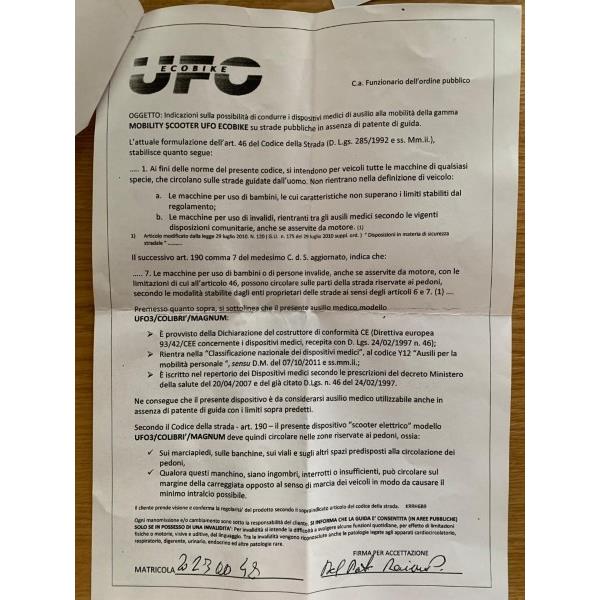 UFO
ECOBIKE
C.a. Funzionario dell'ordine pubblico
OGGETTO: Indicazioni sulla possibilità di condurre i dispositivi medici di ausilio alla mobilità della gamma
MOBILITY SCOOTER UFO ECOBIKE su strade pubbliche in assenza di patente di guida.
L'attuale formulazione dell'art. 46 del Codice della Strada (D. Lgs. 285/1992 e ss. Mm.ii.),
stabilisce quanto segue:
..... 1. Ai fini delle norme del presente codice, si intendono per veicoli tutte le macchine di qualsiasi
specie, che circolano sulle strade guidate dall'uomo. Non rientrano nella definizione di veicolo:
a. Le macchine per uso di bambini, le cui caratteristiche non superano i limiti stabiliti dal
regolamento;
b. Le macchine per uso di invalidi, rientranti tgli ausili medici secondo le vigenti
disposizioni comunitarie, anche se asservite da motore. (1)
1) Articolo modificato dalla legge 29 luglio 2010. N. 120 ( G.U. n. 175 del 29 luglio 2010 suppl. ord. ) " Disposizioni in materia di sicurezza
stradale " ..........
Il successivo art. 190 comma 7 del medesimo C. d. S. aggiornato, indica che:
..... 7. Le macchine per uso di bambini o di persone invalide, anche se asservite da motore, con le
limitazioni di cui all'articolo 46, possono circolare sulle parti della strada riservate ai pedoni,
secondo le modalità stabilite dagli enti proprietari delle strade ai sensi degli articoli 6 e 7. (1) ....
Premesso quanto sopra, si sottolinea che il presente ausilio medico modello
UFO3/COLIBRI'/MAGNUM:
➢ È provvisto della Dichiarazione del costruttore di conformità CE (Direttiva europea
93/42/CEE concernente i dispositivi medici, recepita con D. Lgs. 24/02/1997 n. 46);
➢ Rientra nella "Classificazione nazionale dei dispositivi medici", al codice Y12 "Ausili per la
mobilità personale ", sensu D.M. del 07/10/2011 e ss.mm.ii.;
➢ È iscritto nel repertorio dei Dispositivi medici secondo le prescrizioni del decreto Ministero
della salute del 20/04/2007 e del già citato D.Lgs. n. 46 del 24/02/1997.
Ne consegue che il presente dispositivo è da considerarsi ausilio medico utilizzabile anche in
assenza di patente di guida con i limiti sopra predetti.
Secondo il Codice della strada - art. 190 – il presente dispositivo "scooter elettrico" modello
UFO3/COLIBRI'/MAGNUM deve quindi circolare nelle zone riservate ai pedoni, ossia:
✓ Sui marciapiedi, sulle banchine, sui viali e sugli altri spazi predisposti alla circolazione dei
pedoni,
✓ Qualora questi manchino, siano ingombri, interrotti o insufficienti, può circolare sul
margine della carreggiata opposto al senso di marcia dei veicoli in modo da causare il
minimo intralcio possibile.
Il cliente prende visione e conferma la regolarita' del prodotto secondo il sopraindicato articolo del codice della strada.
Ogni manomissione e/o cambiamento sono sotto la responsabilità del cliente. SI INFORMA CHE LA GUIDA E' CONSENTITA (IN AREE PUBBLICHE)
SOLO SE IN POSSESSO DI UNA INVALIDITA'. Per invalidità si intende la difficoltà a svolgere alcune funzioni quotidiane, per effetto di limitazioni
fisiche o motorie, visive e uditive, del linguaggio. Tra le invalidità vengono riconosciute anche le patologie legate agli apparati cardiocircolatorio,
respiratorio, digerente, urinario, endocrino ed altre patologie rare.
FIRMA PER ACCETTAZIONE
MATRICOLA